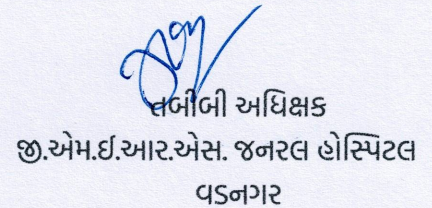 તબીબી અધિક્ષક
જી.એમ.ઈ.આર.એસ. જનરલ હોસ્પિટલ
વડનગર